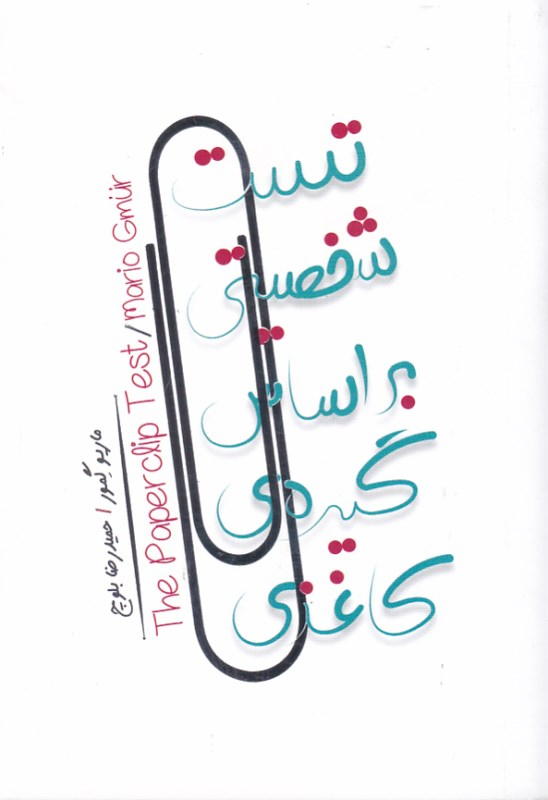 تست
شخصیتی
بر اساس
گیره‌ی
کاغذی
The Paperclip Test/Mario Gmür
ماریو گمور / حمیدرضا بلوچ